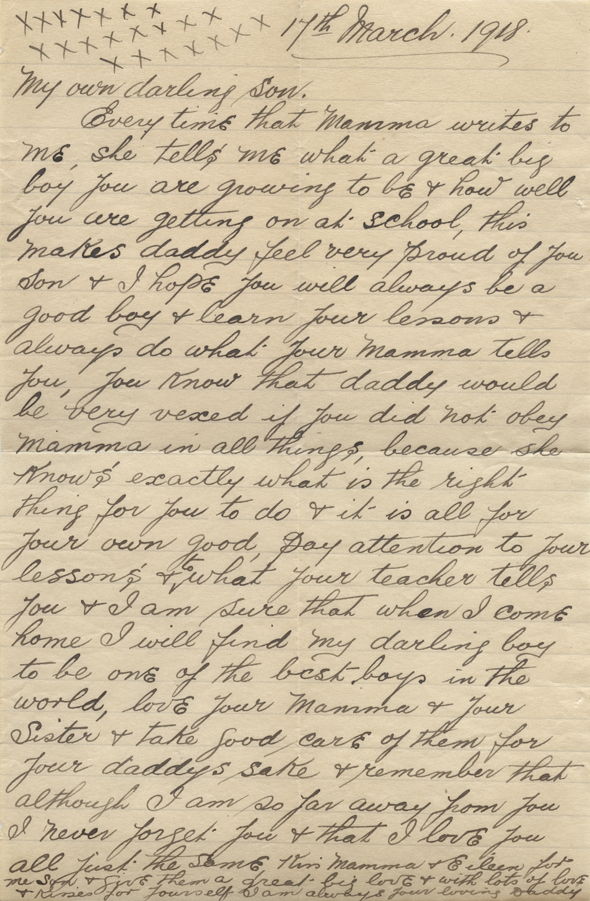 X X X X X X X
X X X X X X X 17th March. 1918.
X X X X X X X
X X X X X
My own darling Son.
Every time that Mamma writes to
me, she tells me what a great big
boy you are growing to be & how well
you are getting on at school, this
makes daddy feel very proud of you
Son & I hope you will always be a
good boy & learn your lessons &
always do what your Mamma tells
you, you know that daddy would
be very vexed if you did not obey
Mamma in all things, because she
knows exactly what is the right
thing for you to do & it is all for
your own good, Pay attention to your
lessons & to what your teacher tells
you & I am sure that when I come
home I will find my darling boy
to be one of the best boys in the
world, love your Mamma & your
Sister & take good care of them for
your daddys sake & remember that
although I am so far away from you
I never forget you & that I love you
all just the same, Kiss Mamma & Eileen for
me Son & give them a great big love & with lots of love
& Kisses for yourself I am always your loving Daddy